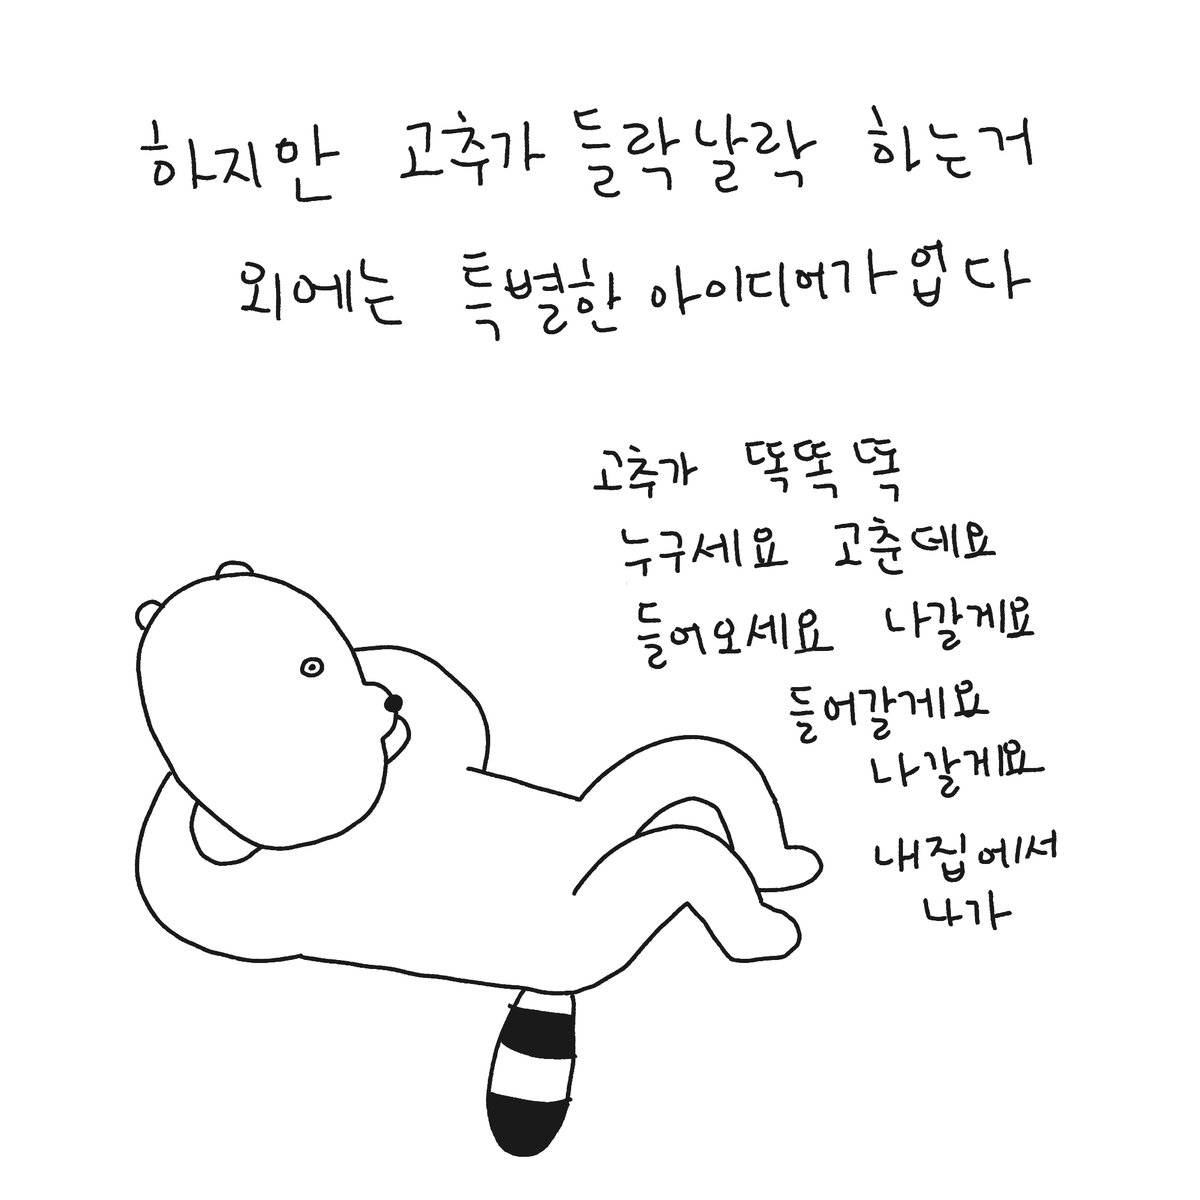 하지만 고추가 들락날락 하는거
외에는 특별한 아이디어가 없다
고추가 똑똑똑
누구세요 고춘데요
들어오세요 나갈게요
들어갈게요
나갈게요
내집에서
나가